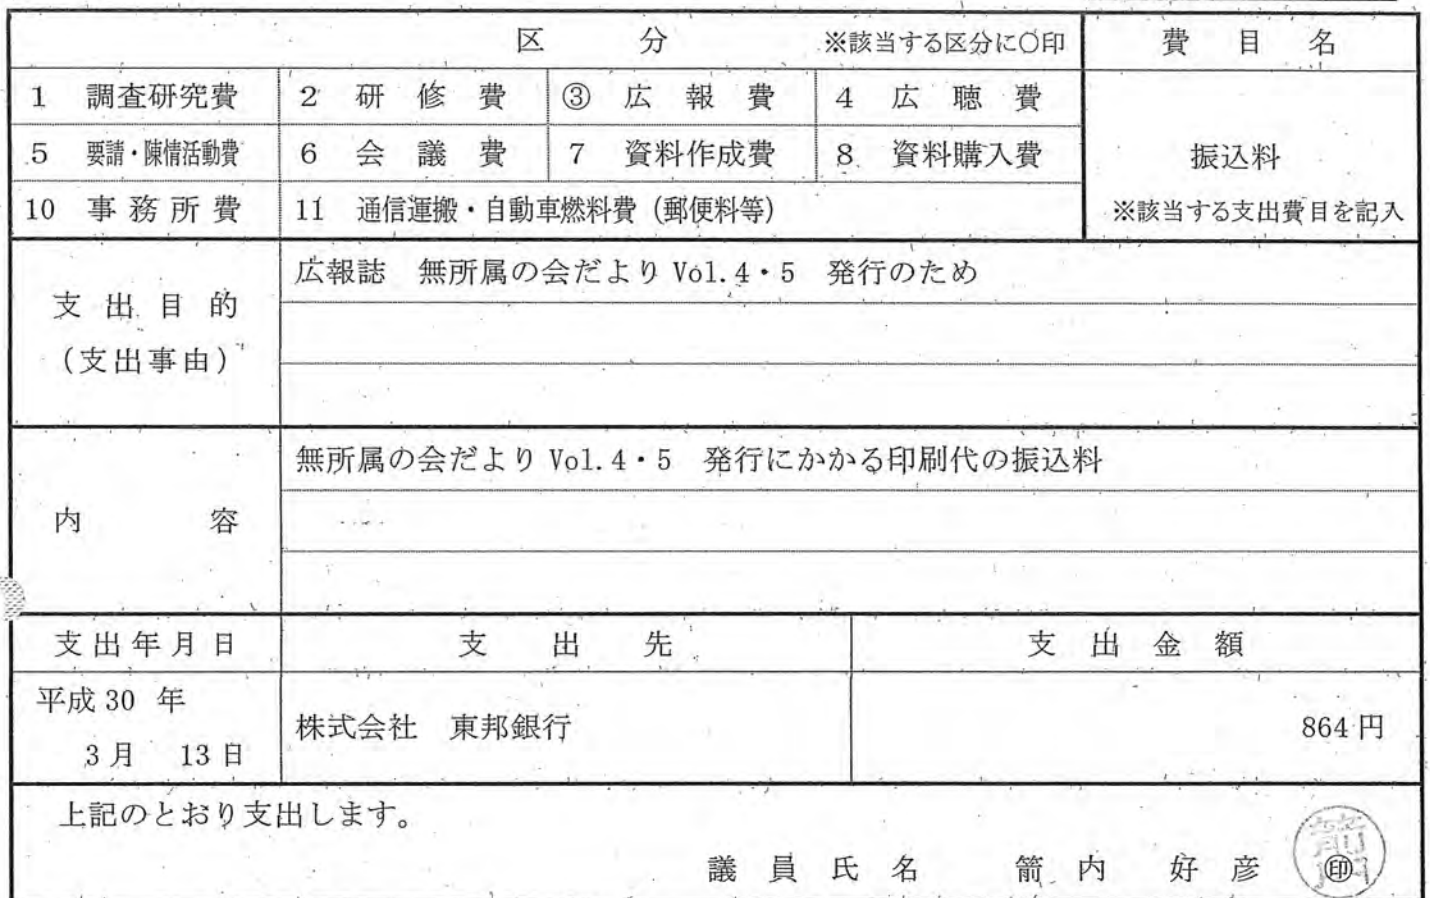 区　分　※該当する区分に○印　費目名
1 調査研究費　2 研修費　③ 広報費　4 広聴費
5 要請・陳情活動費　6 会議費　7 資料作成費　8 資料購入費　振込料
10 事務所費　11 通信運搬・自動車燃料費（郵便料等）　※該当する支出費目を記入
広報誌　無所属の会だより Vol.4・5　発行のため
支出目的
（支出事由）
無所属の会だより Vol.4・5　発行にかかる印刷代の振込料
内容
支出年月日　支出先　支出金額
平成 30 年
3 月　13 日　株式会社　東邦銀行　864 円
上記のとおり支出します。
議員氏名　箭内　好彦　㊞
箭内